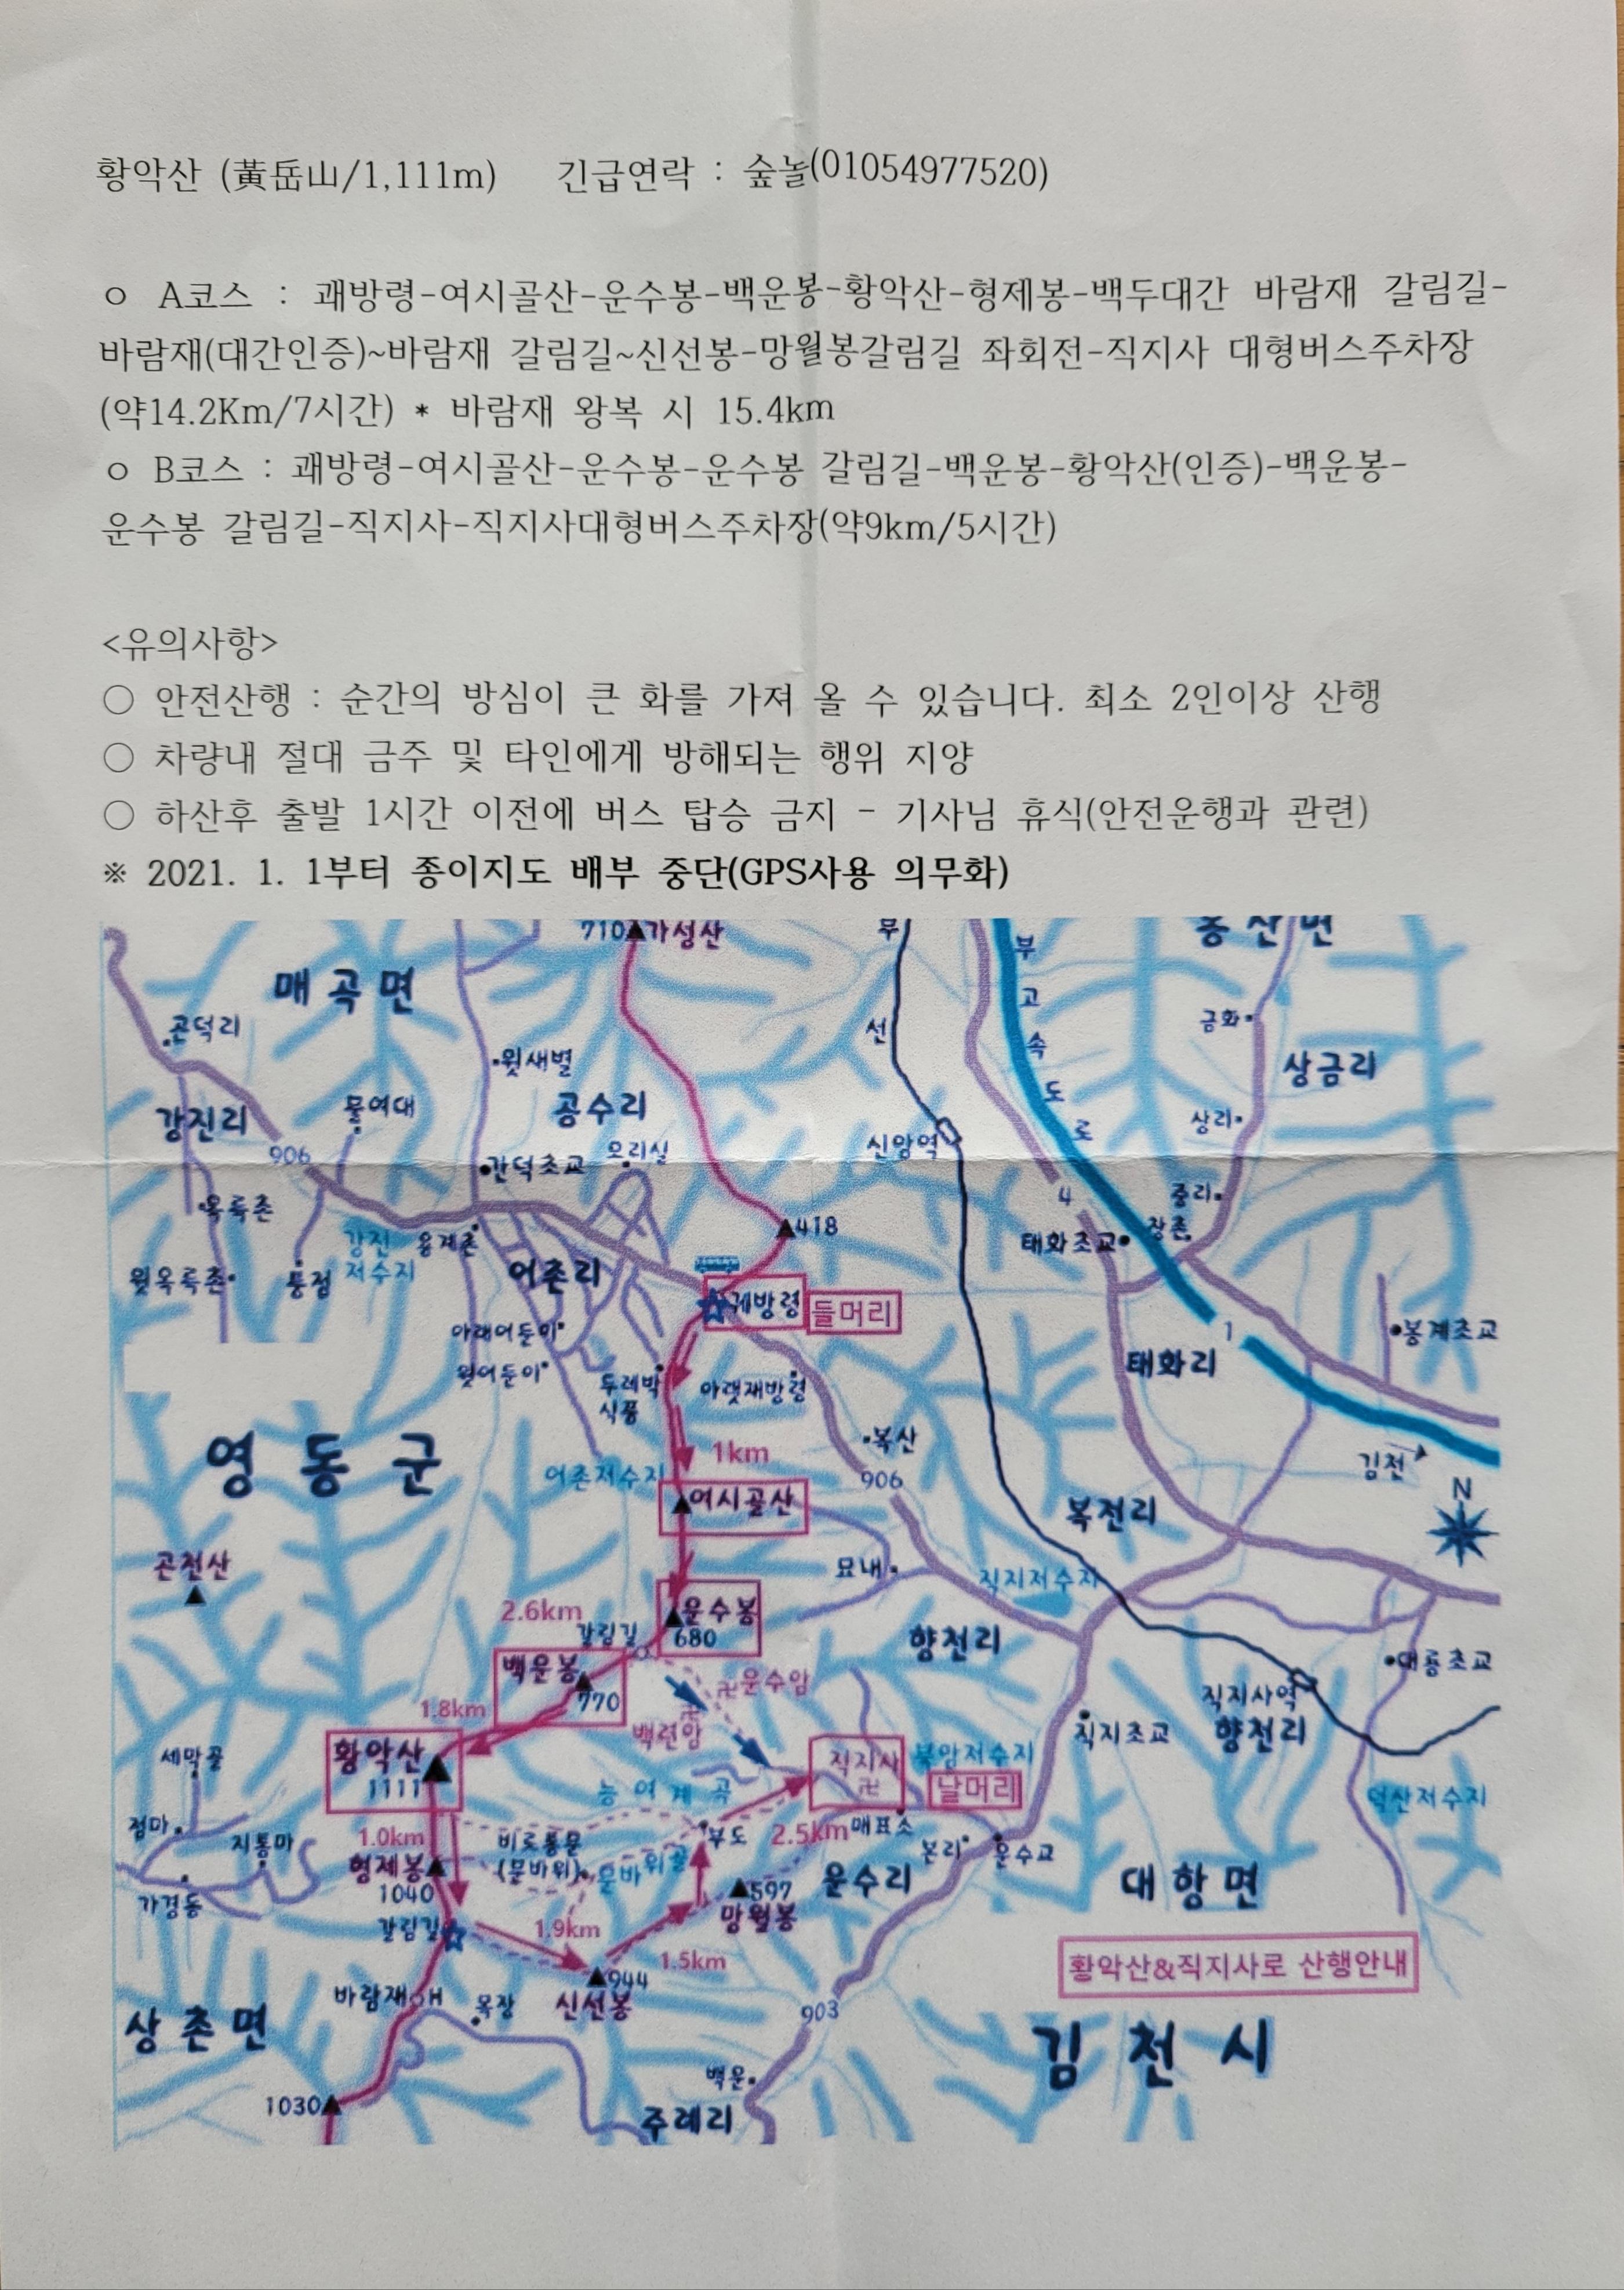 황악산 (黃岳山/1,111m) 긴급연락 : 숲놀(01054977520)
○ A코스 : 괘방령-여시골산-운수봉-백운봉-황악산-형제봉-백두대간 바람재 갈림길-
바람재(대간인증)~바람재 갈림길~신선봉-망월봉갈림길 좌회전-직지사 대형버스주차장
(약14.2Km/7시간) * 바람재 왕복 시 15.4km
○ B코스 : 괘방령-여시골산-운수봉-운수봉 갈림길-백운봉-황악산(인증)-백운봉-
운수봉 갈림길-직지사-직지사대형버스주차장(약9km/5시간)
<유의사항>
○ 안전산행 : 순간의 방심이 큰 화를 가져 올 수 있습니다. 최소 2인이상 산행
○ 차량내 절대 금주 및 타인에게 방해되는 행위 지양
○ 하산후 출발 1시간 이전에 버스 탑승 금지 - 기사님 휴식(안전운행과 관련)
※ 2021. 1. 1부터 종이지도 배부 중단(GPS사용 의무화)
710 가성산
부고속도로
매곡면
곤덕리
선
금화
윗새별
상금리
강진리
공수리
상리
신암역
906
간덕초교
모리실
4
중리
옥륵촌
418
강진
저수지
용계촌
태화초교
장촌
윗옥륵촌
어촌리
괘방령
들머리
아래어둔이
1
봉계초교
윗어둔이
태화리
아랫재방령
식품
영동군
1km
복산
김천
어촌저수지
906
여시골산
N
복전리
곤천산
묘내
직지저수지
2.6km
운수봉
680
갈림길
향천리
백운봉
770
운수암
대룡초교
1.8km
백련암
직지사역
향천리
직지초교
황악산
1111
세막골
직지사
卍
북암저수지
날머리
능여계곡
덕산저수지
점마
지통마
1.0km
비로통문
(문바위)
문바위골
부도
2.5km
매표소
형제봉
1040
597
망월봉
운수리
본리
운수교
대항면
가경동
갈림길
1.9km
1.5km
황악산&직지사로 산행안내
944
신선봉
바람재
H
목장
903
상촌면
김천시
백운
1030
주례리